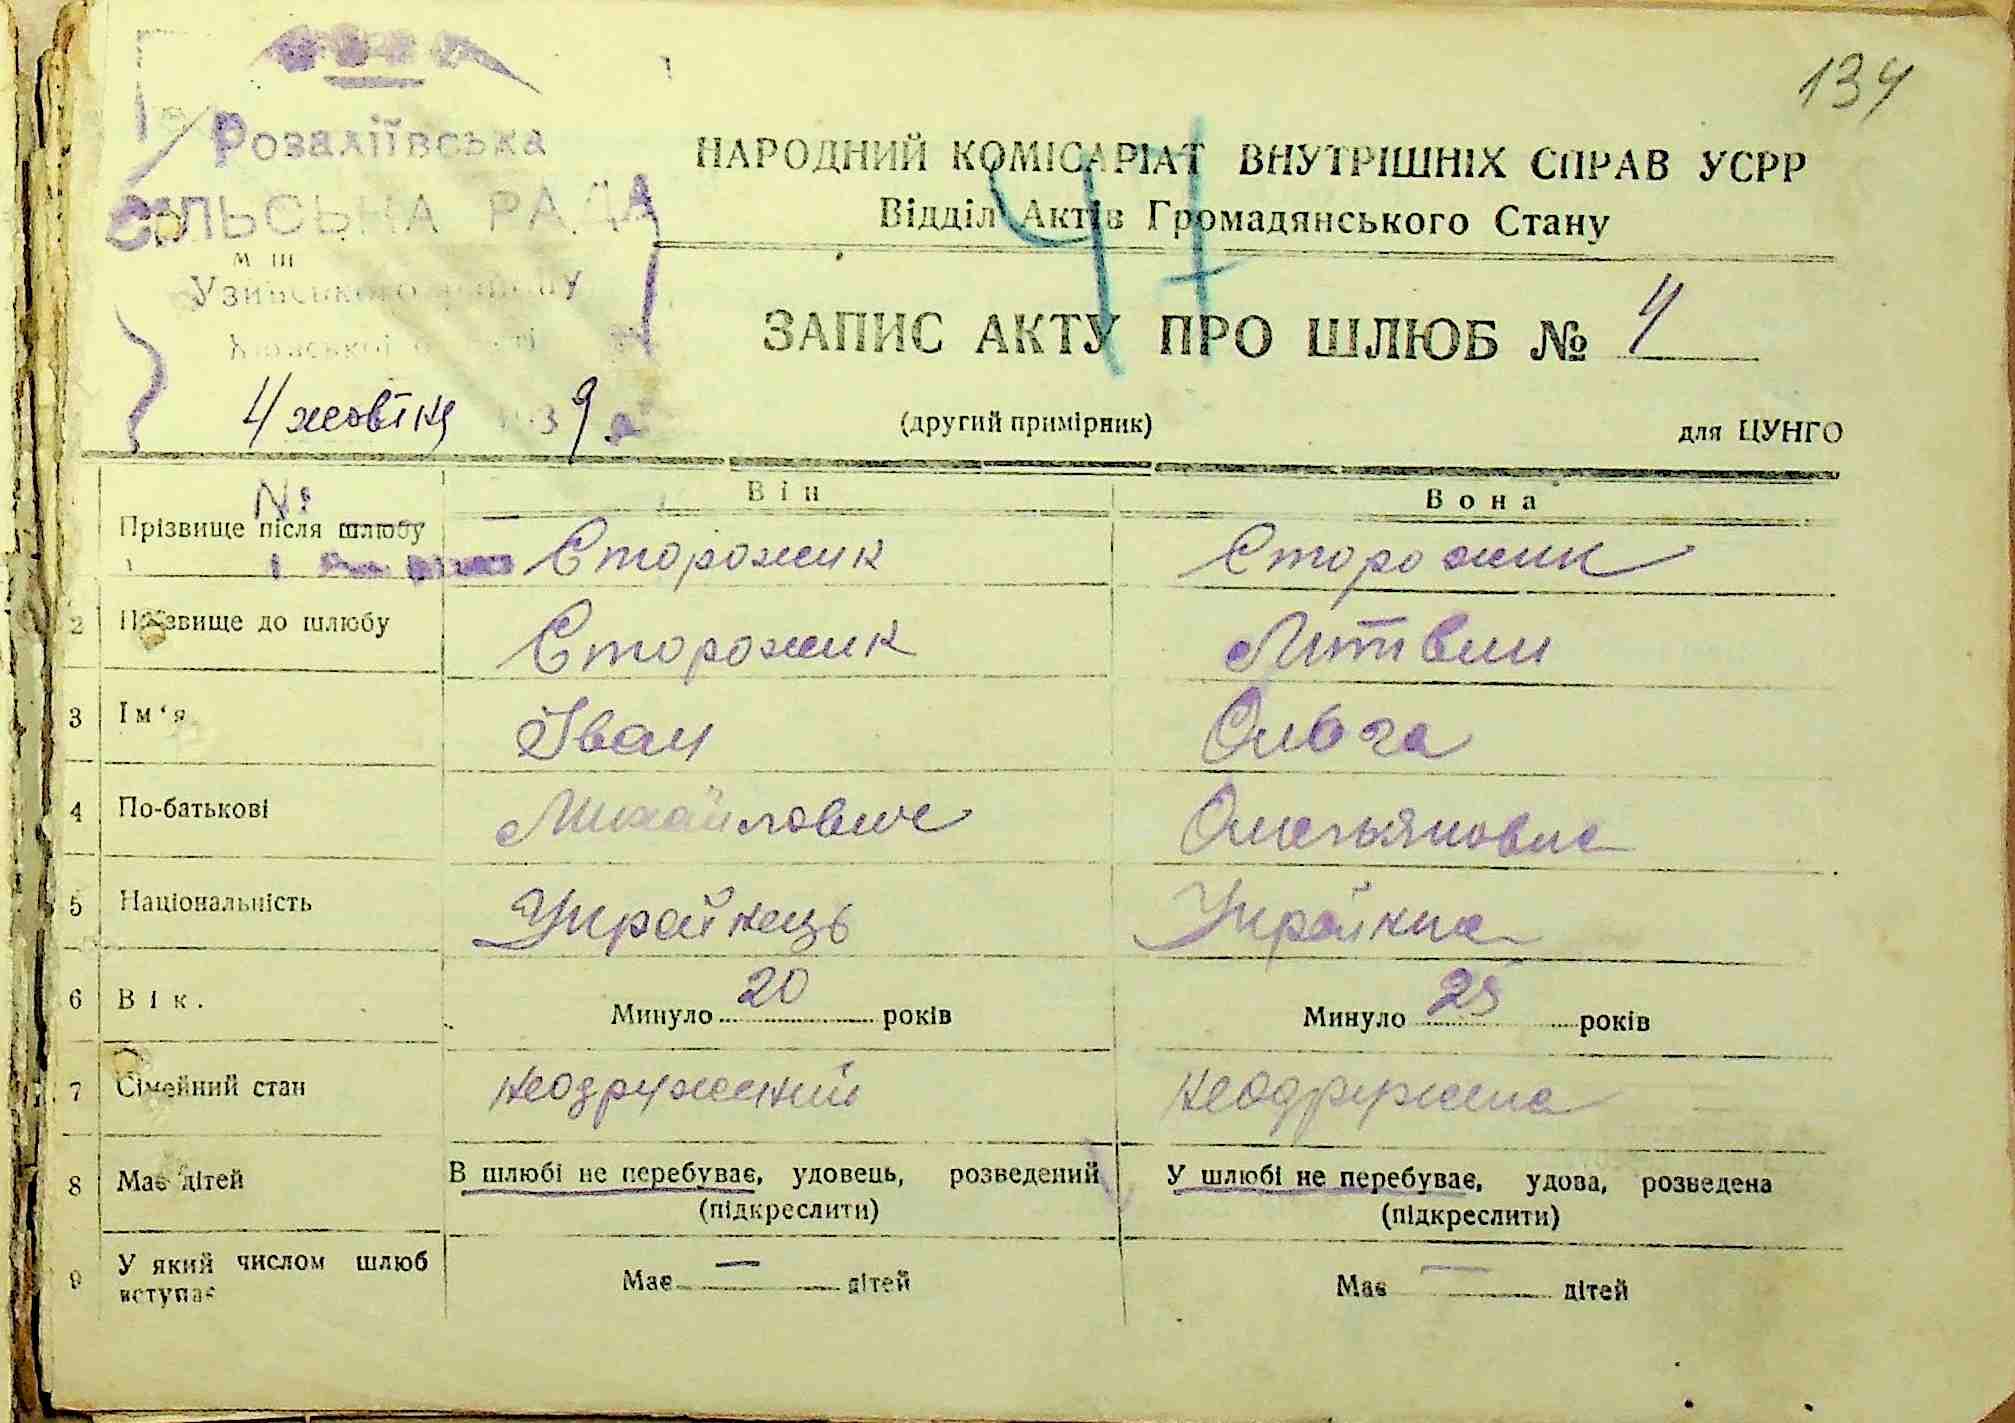 134
Розаліївська
СІЛЬСЬКА РАДА
Узинського району
Київської області
4 жовтня 1939 р
НАРОДНИЙ КОМІСАРІАТ ВНУТРІШНІХ СПРАВ УСРР
Відділ Актів Громадянського Стану
47
ЗАПИС АКТУ ПРО ШЛЮБ № 4
(другий примірник) для ЦУНГО
№
Він Вона
Прізвище після шлюбу Сторожик Сторожик
2 Прізвище до шлюбу Сторожик Литвин
3 Ім‘я Іван Ольга
4 По-батькові Михайлович Омельяновна
5 Національність Українець Українка
6 Вік. Минуло 20 років Минуло 25 років
7 Сімейний стан неодружений неодружена
8 Має дітей В шлюбі не перебуває, удовець, розведений У шлюбі не перебуває, удова, розведена
(підкреслити) (підкреслити)
9 У який числом шлюб вступає Має — дітей Має — дітей